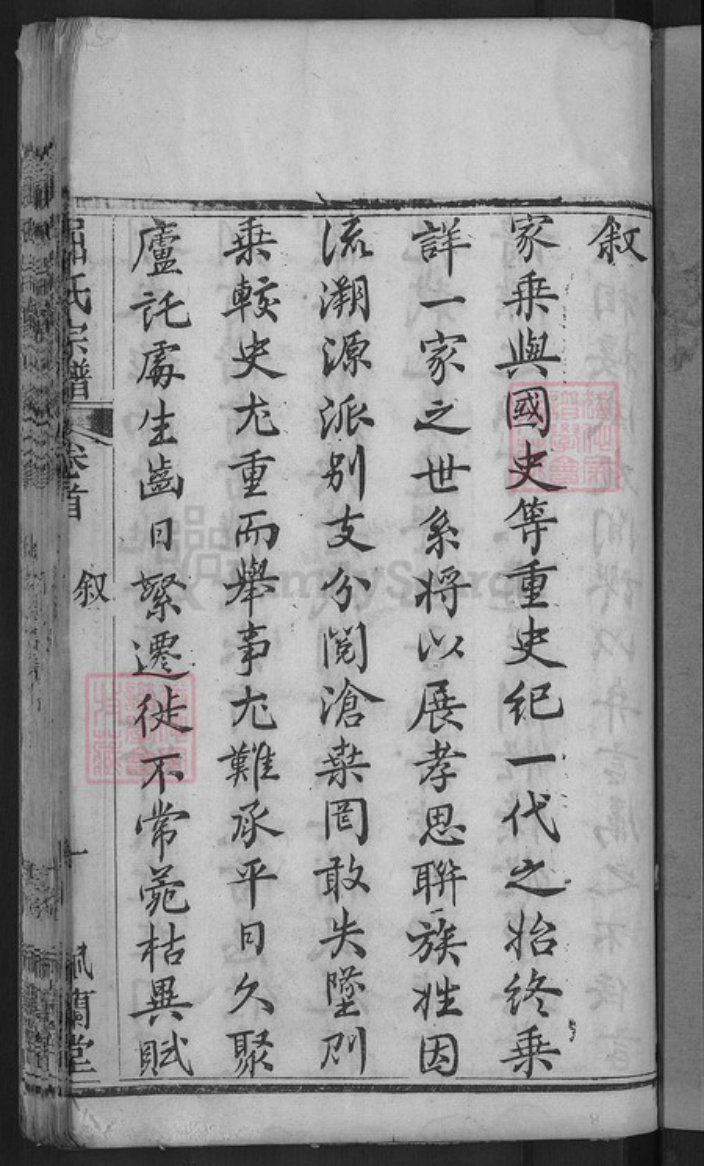 叙
家乗與國史等重史紀一代之始終乗
詳一家之世系将以展孝思聨族姓因
流溯源派别支分閲滄桒罔敢失墜則
乗較史尤重而舉事尤難承平日久聚
廬託處生齒日繁遷徙不常菀枯異賦
屈氏宗譜 卷首 叙 一 佩蘭堂